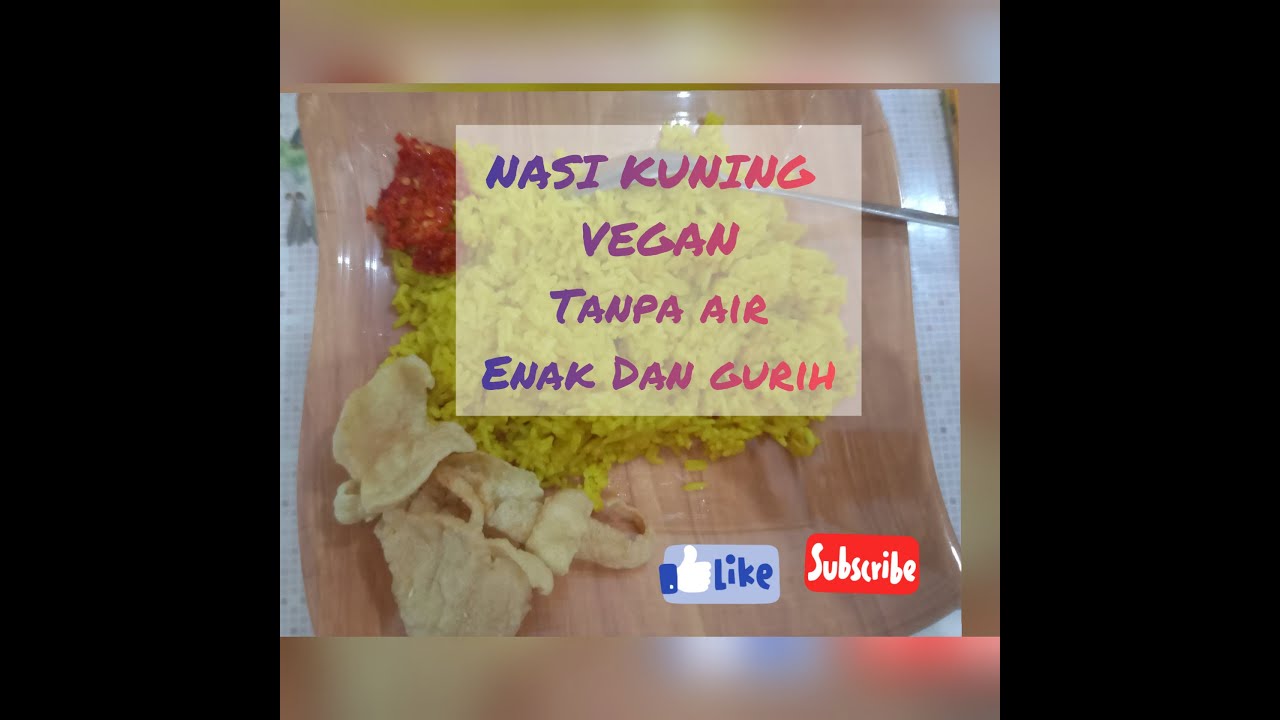 NASI KUNING
VEGAN
TANPA AIR
ENAK DAN GURIH
Like
Subscribe